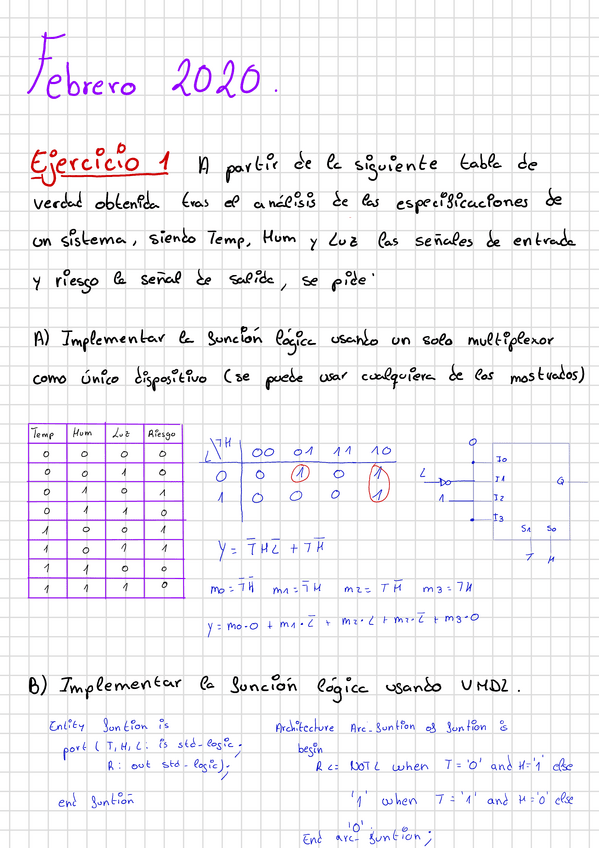 Febrero 2020.
Ejercicio 1 A partir de la siguiente tabla de
verdad obtenida tras el análisis de las especificaciones de
un sistema, siendo Temp, Hum y Luz las señales de entrada
y riesgo la señal de salida, se pide:
A) Implementar la función lógica usando un solo multiplexor
como único dispositivo (se puede usar cualquiera de los mostrados)
Temp Hum Luz Riesgo
0 0 0 0
0 0 1 0
0 1 0 1
0 1 1 0
1 0 0 1
1 0 1 1
1 1 0 0
1 1 1 0
L\TH 00 01 11 10
0 0 1 0 1
1 0 0 0 1
Y = T̅HL̅ + TH̅
m0 = T̅H̅ m1 = T̅H m2 = TH̅ m3 = TH
Y = m0·0 + m1·L̅ + m2·L + m2·L̅ + m3·0
0
I0
L I1 Q
1 I2
I3
S1 S0
T H
B) Implementar la función lógica usando VHDL.
Entity funtion is
port (T, H, L: is std-logic;
R: out std-logic);
end funtion
Architecture Arc-funtion of funtion is
begin
R <= NOT L when T = '0' and H = '1' else
'1' when T = '1' and H = '0' else
'0';
End arc-funtion;